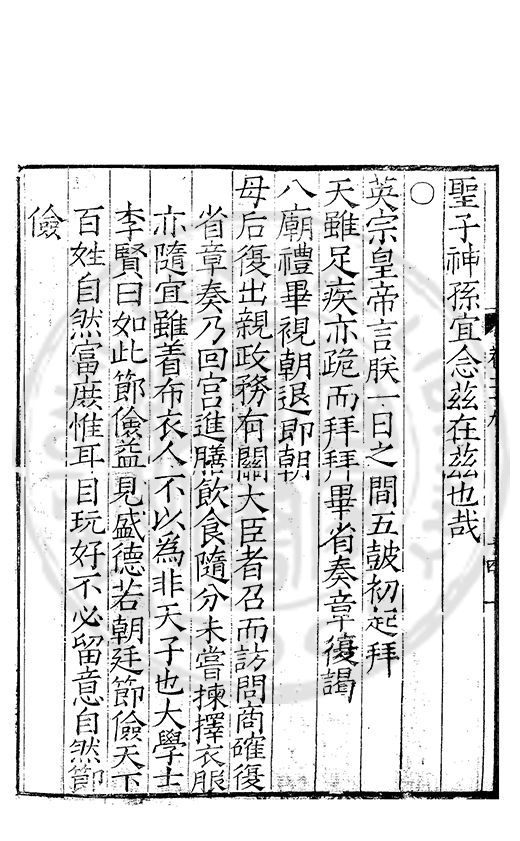 聖子神孫宜念兹在兹也哉
○
英宗皇帝言朕一日之間五皷初起拜
天雖足疾亦跪而拜拜畢省奏章復謁
八廟禮畢視朝退即朝
母后復出親政務有關大臣者召而訪問商確復
省章奏乃回宮進膳飲食隨分未嘗揀擇衣服
亦隨宜雖着布衣人不以為非天子也大學士
李賢曰如此節儉益見盛德若朝廷節儉天下
百姓自然富庶惟耳目玩好不必留意自然節
儉